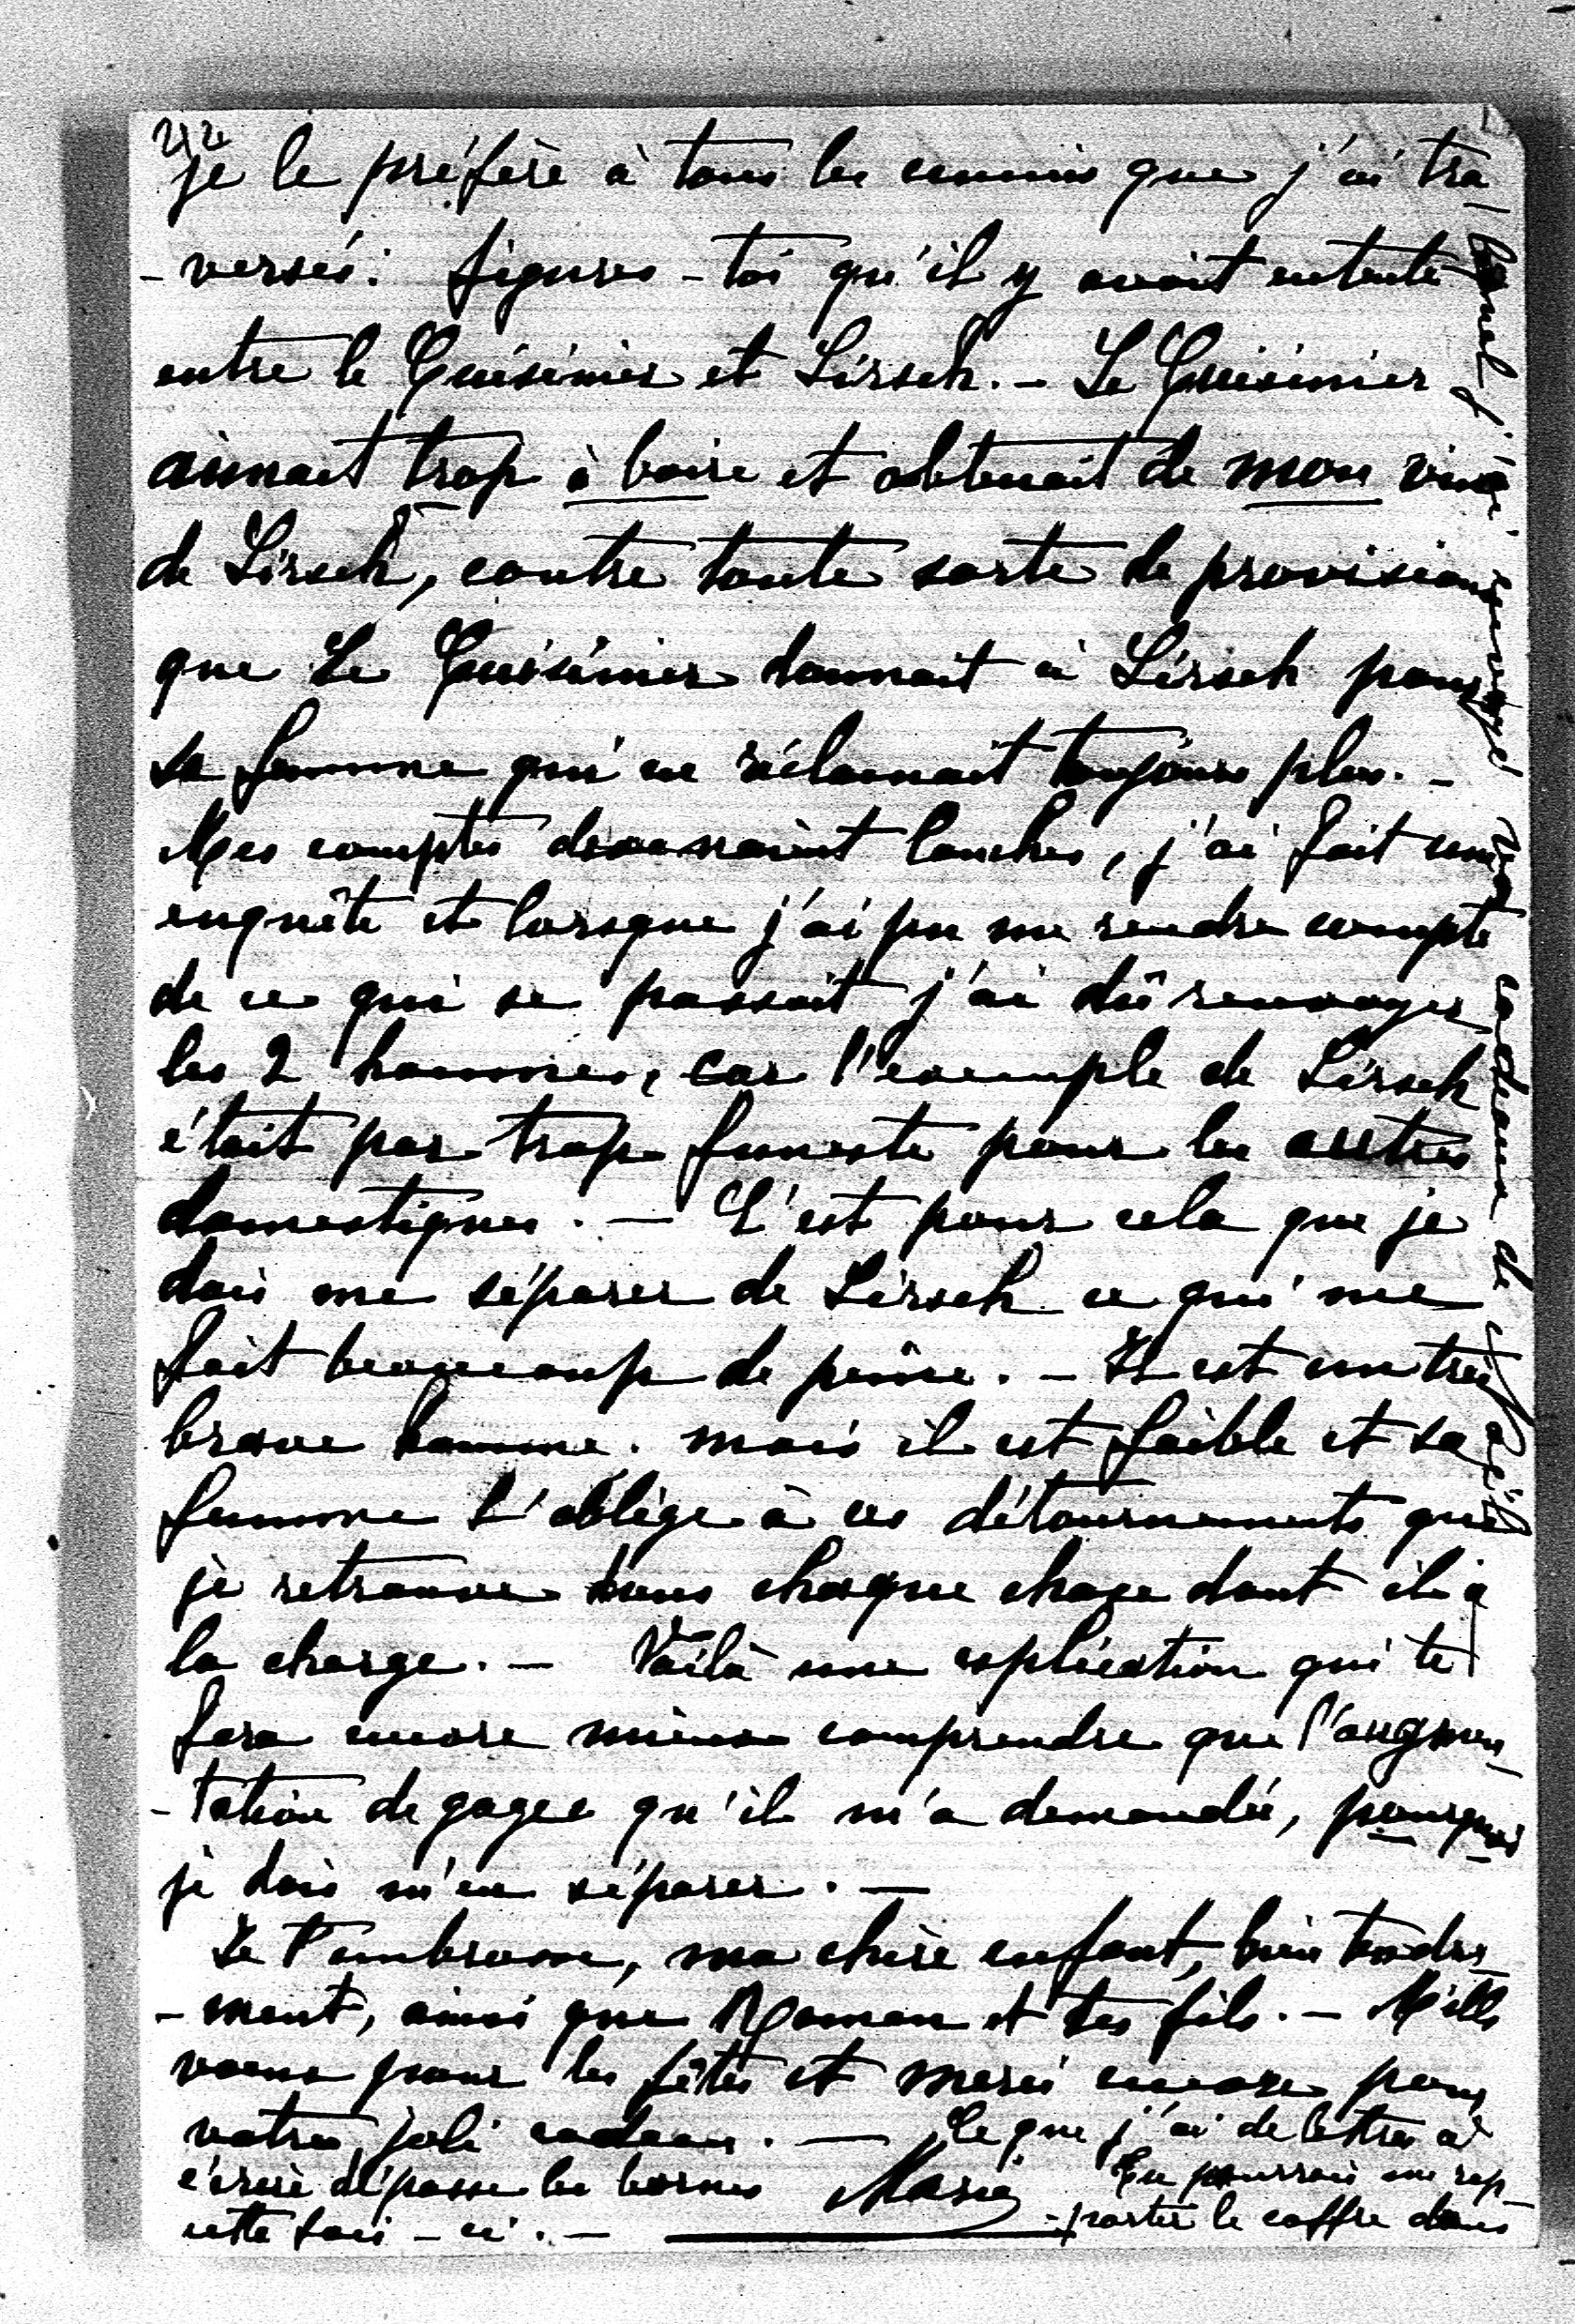 242
je le préfère à tous les ennuis que j'ai tra
- versés. figures-toi qu'il y avait entente
entre le Cuisinier et Lirsch. - Le Cuisinier
aimait trop à boire et obtenait de mon vin
de Lirsch, contre toute sorte de provisions
que le Cuisinier donnait à Lirsch pour
sa femme qui en réclamait toujours plus. -
Mes comptes devenaient louches, j'ai fait une
enquête et lorsque j'ai pu me rendre compte
de ce qui se passait j'ai dû renvoyer
les 2 hommes, car l'exemple de Lirsch
était par trop funeste pour les autres
domestiques. - C'est pour cela que je
dois me séparer de Lirsch ce qui me
fait beaucoup de peine. - Il est un très
brave homme. mais il est faible et sa
femme l'oblige à ces détournements que
je retrouve dans chaque chose dont il a
la charge. - Voilà une explication qui te
fera encore mieux comprendre que l'augmen
- tation de gages qu'il m'a demandée, pourquoi
je dois m'en séparer. -
Je t'embrasse, ma chère enfant, bien tendre
- ment, ainsi que Roman et tes fils. - Mille
voeux pour les fêtes et merci encore pour
votre joli cadeau. - Ce que j'ai de lettres à
écrire dépasse les bornes
cette fois-ci. -
Marie
Tu pourrais me rap
- porter le coffre dans
lequel j'ai envoyé vos cadeaux de